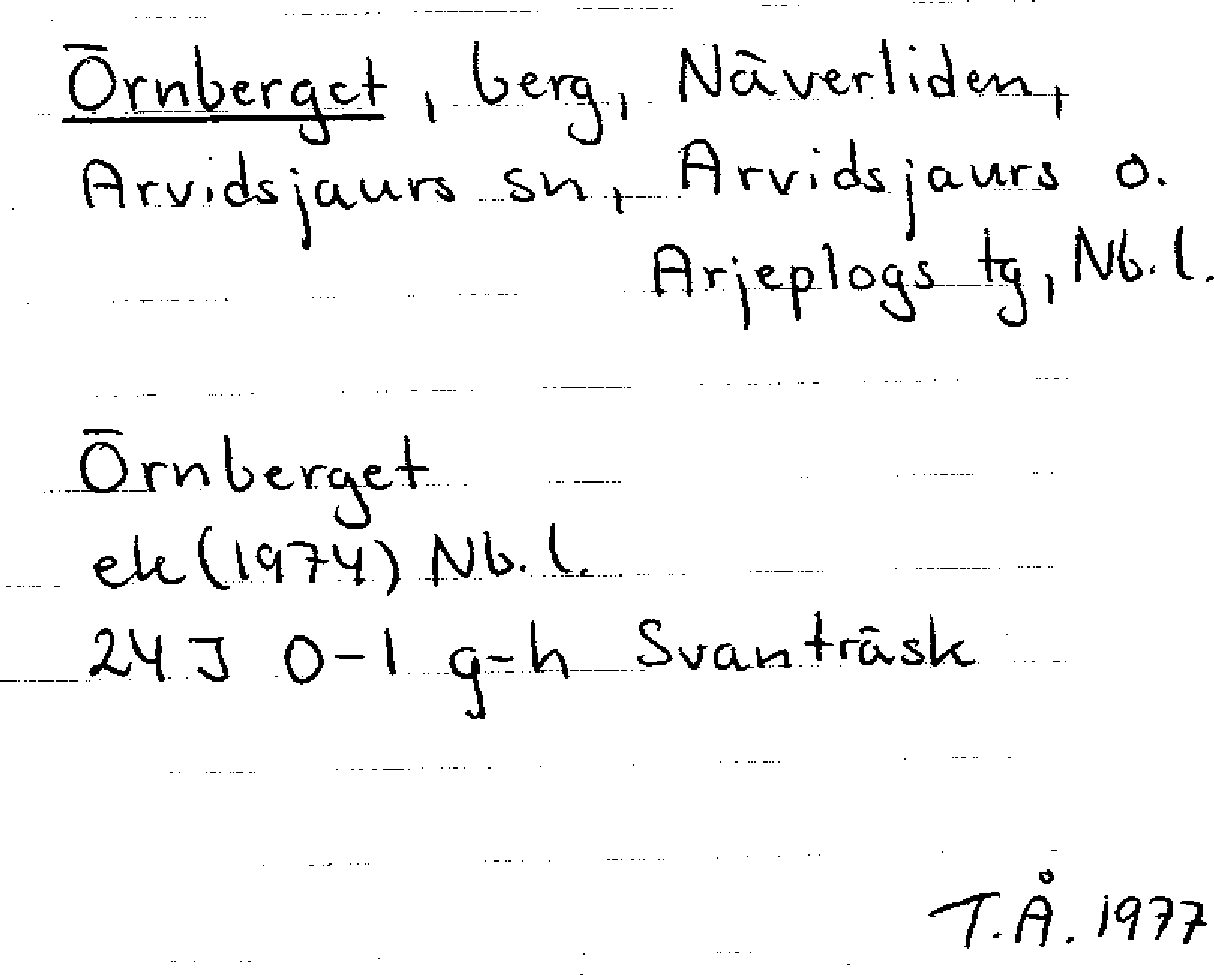 Örnberget, berg, Näverliden,
Arvidsjaurs sn, Arvidsjaurs o.
Arjeplogs tg, Nb.l.
Örnberget
ek (1974) Nb.l.
24J 0-1 g-h Svanträsk
T.Å. 1977